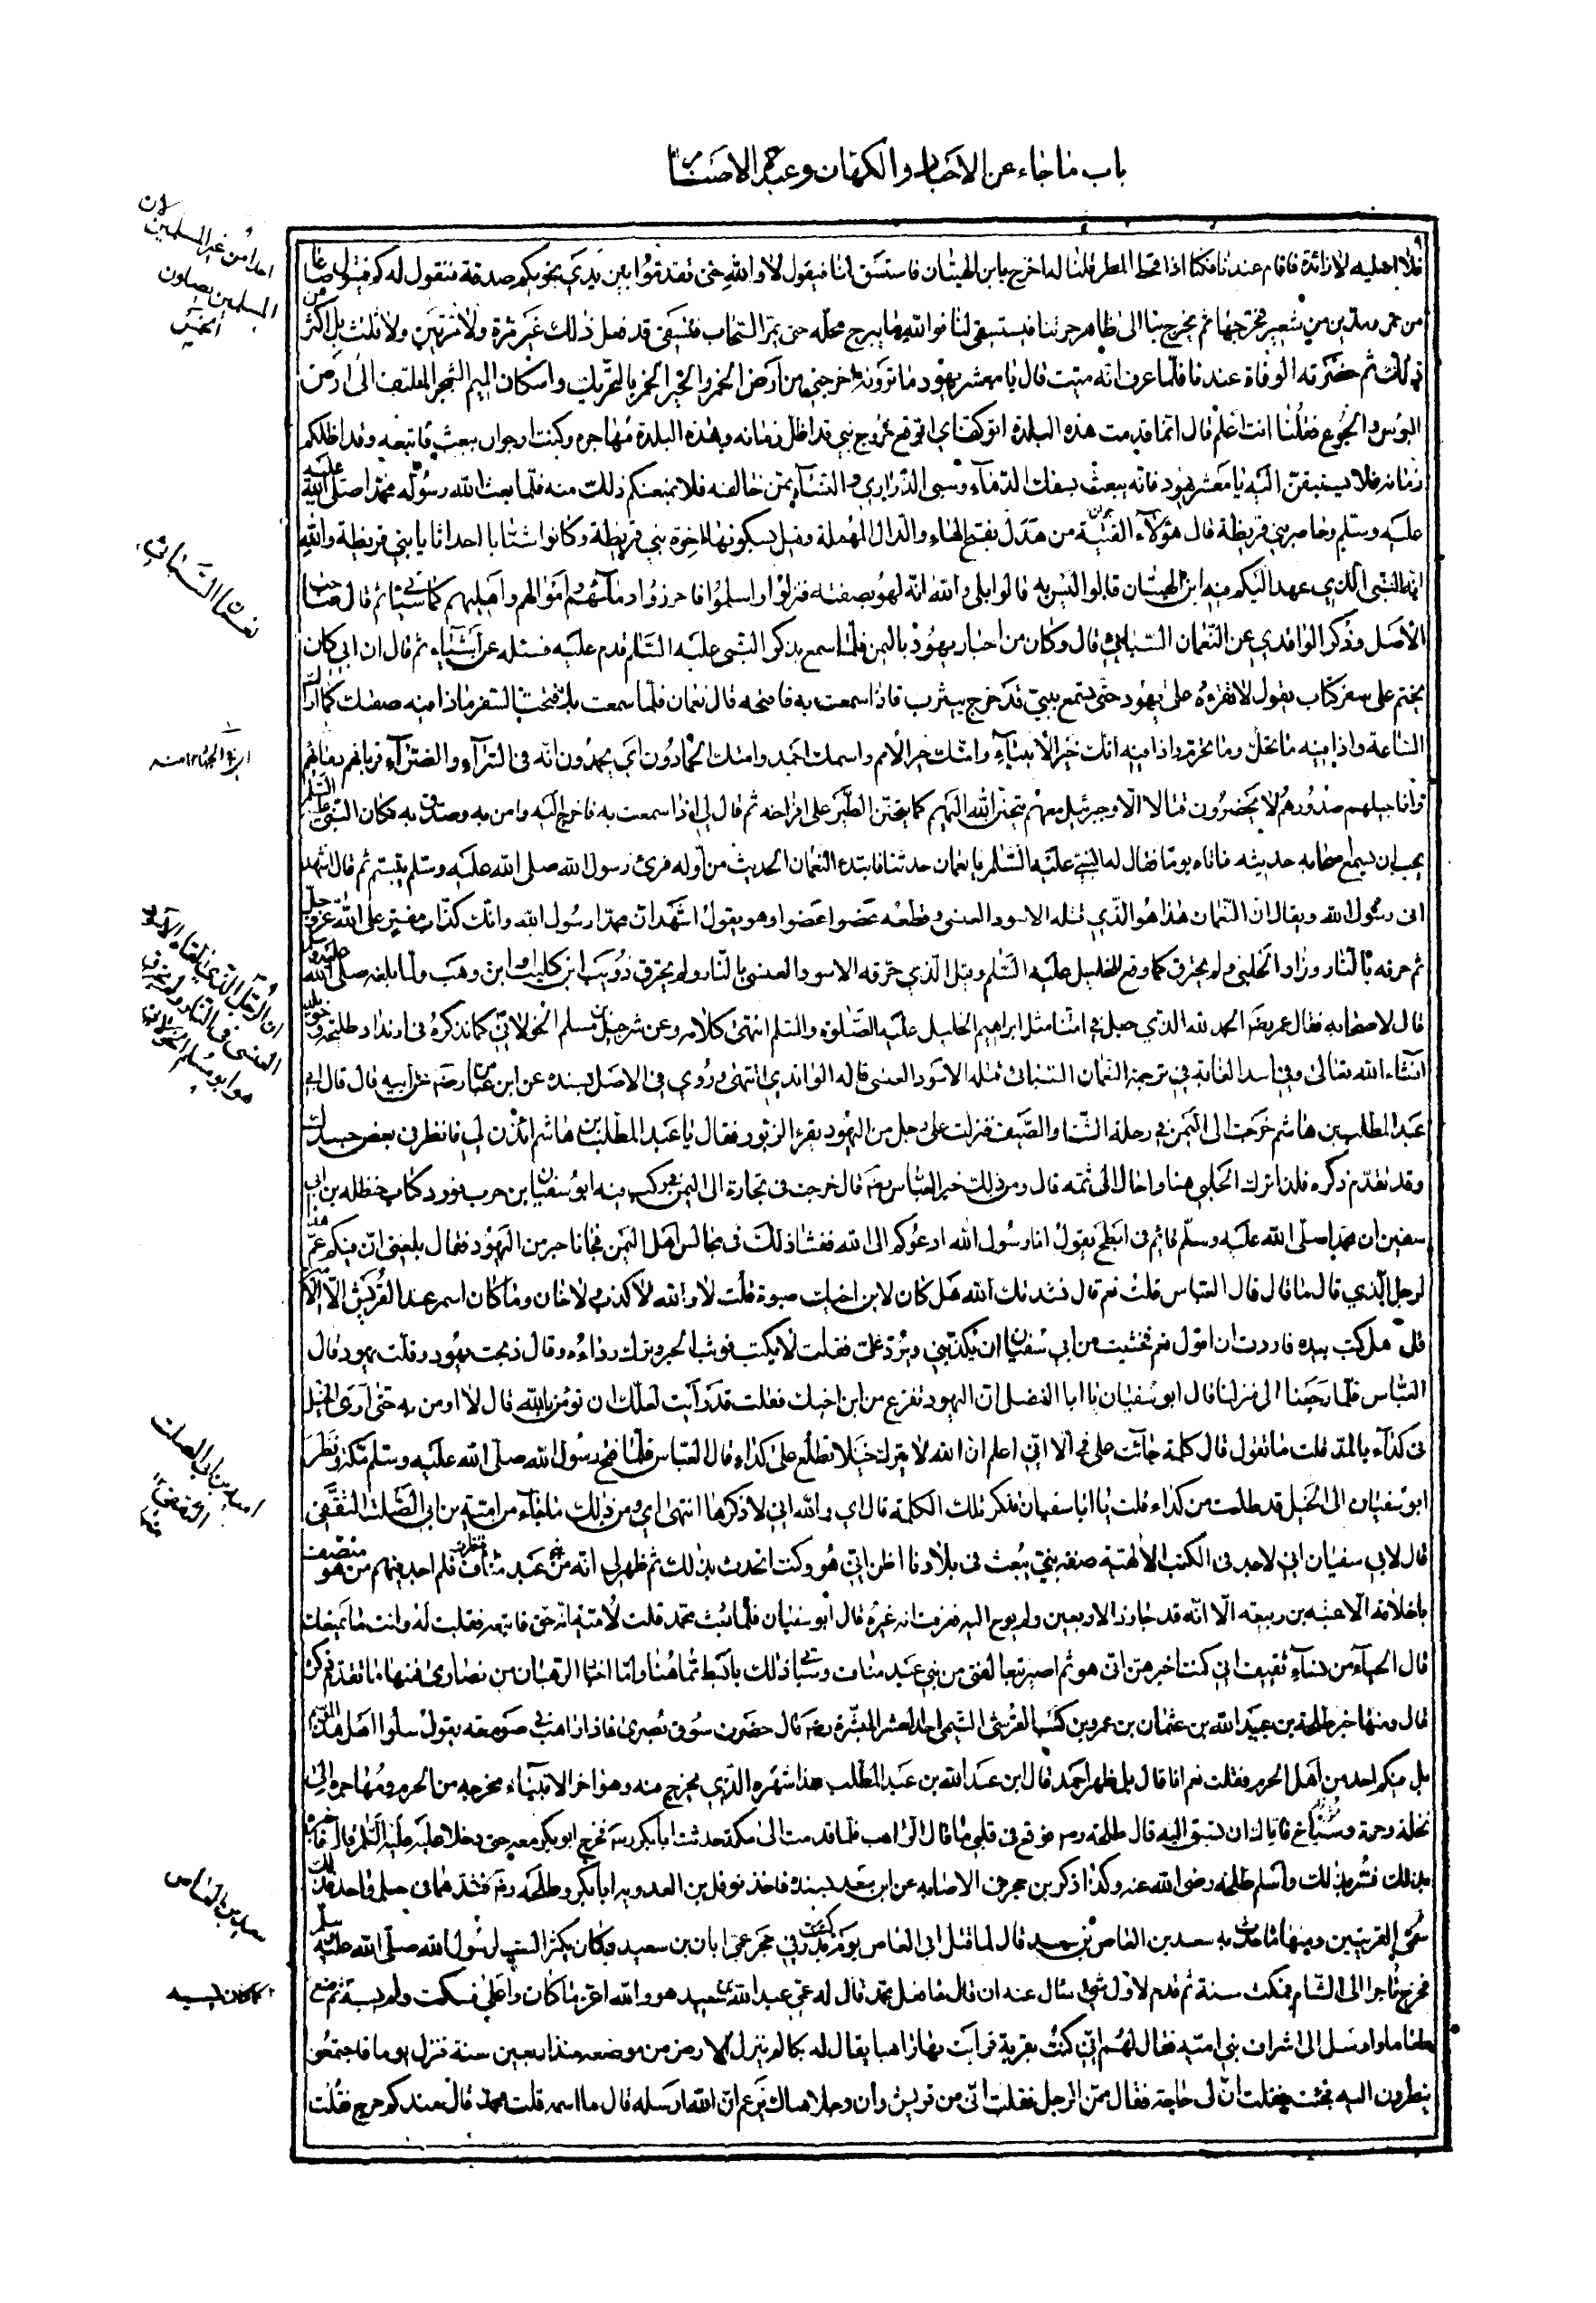 باب ما جاء عن الاحبار والكهان وعبدة الاصنام
فاقام عندنا فكنا اذا قحط المطر قلنا له اخرج يا ابن الهيبان فاستسق لنا فيقول لا والله حتى تقدموا بين يدي نجويكم صدقة فنقول له كم فيقول صاعا
من تمر ومدين من شعير فنخرجها ثم يخرج بنا الى ظاهر حرتنا فيستسقي لنا فوالله ما يبرح محله حتى يمر السحاب فنسقى قد فعل ذلك غير مرة ولا مرتين ولا ثلث بل اكثر
من ذلك ثم حضرته الوفاة عندنا فلما عرف انه ميت قال يا معشر يهود ما ترونه اخرجني من ارض الخمر والخمير الخمر بالتحريك واسكان الميم الشجر الملتف الى ارض
البؤس والجوع فقلنا انت اعلم قال انما قدمت هذه البلدة اتوكف اي اتوقع خروج نبي قد اظل زمانه وهذه البلدة مهاجره وكنت ارجو ان يبعث فاتبعه وقد اظلكم
زمانه فلا تسبقن اليه يا معشر يهود فانه يبعث بسفك الدماء وسبي الذراري والنساء ممن خالفه فلا يمنعكم ذلك منه فلما بعث الله رسوله محمدا صلى الله
عليه وسلم وحاصر بني قريظة قال هؤلاء الفتية من هدل بفتح الهاء والدال المهملة وقيل بسكونها اخوة بني قريظة وكانوا شبابا احداثا يا بني قريظة والله
انه النبي الذي عهد اليكم فيه ابن الهيبان قالوا ليس به قالوا بلى والله انه لهو بصفته فنزلوا واسلموا فاحرزوا دمائهم واموالهم واهليهم كما سيأتي ثم قال صاحب
الاصل وذكر الواقدي عن النعمان السبائي قال وكان من احبار يهود باليمن فلما سمع بذكر النبي عليه السلام قدم عليه فسئله عن اشياء ثم قال ان ابي كان
يختم على سفر كتاب يقول لا تقرؤه على يهود حتى تسمع بنبي قد خرج بيثرب فاذا سمعت به فافتحه قال نعمان فلما سمعت بك فتحت السفر فاذا فيه صفتك كما اراك
الساعة واذا فيه ما تحل وما تحرم واذا فيه انك خير الانبياء وامتك خير الامم واسمك احمد وامتك الحمادون اي يحمدون الله في السراء والضراء قربانهم دماؤهم
واناجيلهم صدورهم لا يحضرون قتالا الا وجبرئيل معهم يتحنن الله اليهم كما يتحنن الطير على افراخه ثم قال لي اذا سمعت به فاخرج اليه وامن به وصدق به فكان النبي
يحب ان يسمع اصحابه حديثه فاتاه يوما فقال له النبي عليه السلام يا نعمان حدثنا فابتدء النعمان الحديث من اوله فرئ رسول الله صلى الله عليه وسلم يتبسم ثم قال اشهد
اني رسول الله ويقال ان النعمان هذا هو الذي قتله الاسود العنسي وقطعه عضوا عضوا وهو يقول اشهد ان محمدا رسول الله وانك كذاب مفتر على الله عز وجل
ثم حرقه بالنار وزاد الحلبي ولم يحترق كما وقع للخليل عليه السلم وقيل الذي حرقه الاسود العنسي بالنار ولم يحترق ذويب ابن كليب او ابن وهب ولما بلغه صلى الله عليه وسلم
قال لاصحابه فقال عمر رضه الحمد لله الذي جعل في امتنا مثل ابراهيم الخليل عليه الصلوة والسلم انتهى كلامه وعن شرحبيل بن مسلم الخولاني كما نذكره في ارتداد طلحة بن خويلد
انشاء الله تعالى وفي اسد الغابة في ترجمة النعمان السبائي قتله الاسود العنسي قاله الواقدي انتهى وروي في الاصل بسنده عن ابن عباس رضه عن ابيه قال قال لي
عبد المطلب بن هاشم خرجت الى اليمن في رحلة الشتاء والصيف فنزلت على رجل من اليهود يقرء الزبور فقال يا عبد المطلب بن هاشم ائذن لي فانظر في بعض جسدك
وقد تقدم ذكره فلذا ترك الحلبي هنا واحال الى ثمه قال ومن ذلك خبر العباس رضه قال خرجت في تجارة الى اليمن في ركب فيه ابو سفيان بن حرب فورد كتاب حنظله بن ابي
سفين ان محمدا صلى الله عليه وسلم قائم في ابطح يقول انا رسول الله ادعوكم الى الله ففشا ذلك في مجالس اهل اليمن فجائنا حبر من اليهود فقال بلغني ان فيكم عم هذا
الرجل الذي قال ما قال قال العباس قلت نعم قال فنشدتك الله هل كان لابن اخيك صبوة قلت لا والله لا كذب ولا خان وما كان اسمه عند القريش الا الامين
قال هل كتب بيده فاردت ان اقول نعم فخشيت من ابي سفيان ان يكذبني ويرد علي فقلت لا يكتب فوثب الحبر وترك رداءه وقال ذبحت يهود وقتلت يهود قال
العباس فلما رجعنا الى منزلنا قال ابو سفيان يا ابا الفضل ان اليهود تفزع من ابن اخيك فقلت قد رايت لعلك ان تؤمن بالله قال لا اومن به حتى ارى الخيل
في كداء بالمد قلت ما تقول قال كلمة جائت على فمي الا اني اعلم ان الله لا يترك خيلا تطلع على كداء قال العباس فلما فتح رسول الله صلى الله عليه وسلم مكة ونظر
ابو سفيان الى الخيل قد طلعت من كداء قلت يا ابا سفيان تذكر تلك الكلمة قال اي والله اني لاذكرها انتهى اي ومن ذلك ما جاء من امية بن ابي الصلت الثقفي
قال لابي سفيان اني لاجد في الكتب الالهية صفة نبي يبعث في بلادنا اظن اني هو وكنت اتحدث بذلك ثم ظهر لي انه من بني عبد مناف فنظرت فلم اجد فيهم من هو متصف
باخلاقه الا عتبه بن ربيعه الا انه قد جاوز الاربعين ولم يوح اليه فعرفت انه غيره قال ابو سفيان فلما بعث محمد قلت لامية انه حق فاتبعه فقلت له وانت ما يمنعك
قال الحياء من نساء ثقيف اني كنت اخبرهن اني هو ثم اصير تبعا لفتى من بني عبد مناف وسيأتي ذلك بابسط مما هنا واما اخبار الرهبان من نصارى فمنها ما تقدم ذكره
قال ومنها خبر طلحة بن عبيد الله بن عثمان بن عمرو بن كعب القرشي التيمي احد العشر المبشرة رضه قال حضرت سوق بصرى فاذا راهب في صومعته يقول سلوا اهل هذا الموسم
هل فيكم احد من اهل الحرم فقلت نعم انا قال هل ظهر احمد قال ابن عبد الله بن عبد المطلب هذا شهره الذي يخرج فيه وهو اخر الانبياء مخرجه من الحرم ومهاجره الى
نخلة وحرة وسباخ فاياك ان تسبق اليه قال طلحة رضه فوقع في قلبي ما قال الراهب فلما قدمت الى مكة حدثت ابا بكر رضه فخرج ابو بكر معه حتى دخلا عليه عليه السلم قال فاخبره
بذلك فسر بذلك واسلم طلحه رضي الله عنه وكذا ذكر بن حجر في الاصابه عن ابن سعد بسنده فاخذ نوفل بن العدويه ابا بكر وطلحه رضه فشدهما في حبل واحد فلذلك
سمي القرينين ومنها ما حدث به سعيد بن العاص بن سعيد قال لما قتل ابي العاص يوم بدر كنت في حجر عمي ابان بن سعيد فكان يكثر السب لرسول الله صلى الله عليه وسلم
فخرج تاجرا الى الشام فمكث سنة ثم قدم فاول شئ سال عنه ان قال ما فعل محمد قال له عمي عبد الله بن سعيد هو والله اعز ما كان واعلى فسكت ولم يسبه ثم صنع
طعاما وارسل الى اشراف بني اميه فقال لهم اني كنت بقرية فرايت بها راهبا يقال له بكا لم ينزل الى الارض من صومعته منذ اربعين سنة فنزل يوما فاجتمعوا
ينظرون اليه فجئت فقلت ان لي حاجة فقال ممن الرجل فقلت اني من قريش وان رجلا هناك يزعم ان الله ارسله قال ما اسمه قلت محمد قال منذ كم خرج فقلت
نعمان السبائي
امية بن ابي الصلت الثقفي
سعيد بن العاص
كما كان يسبه